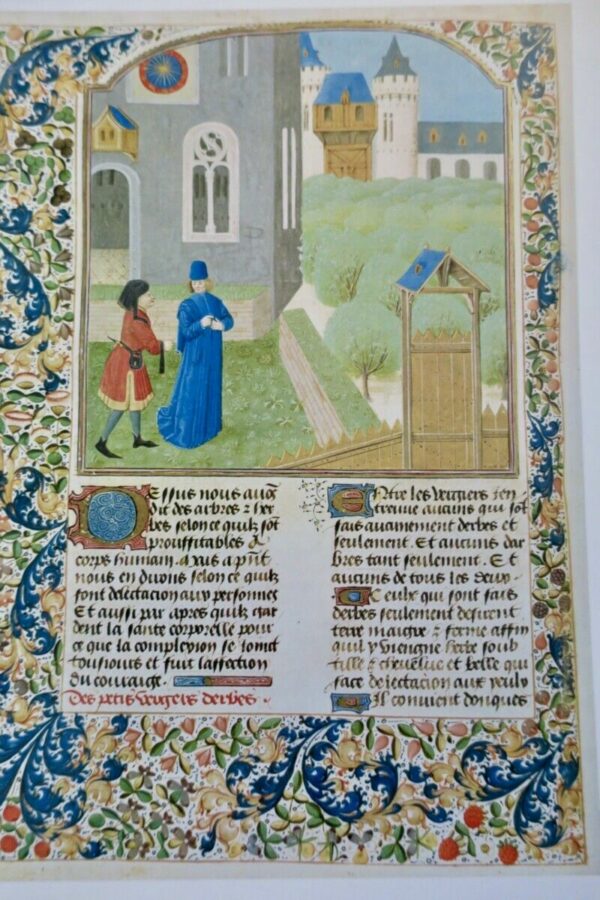 Dessus nous auõs
dit des arbres ⁊ her
bes selon ce quilz sõt
prouffitables a
corps humain. a pñt
nous en dirons selon ce quilz
sont delectacion aux personnes
Et aussi par apres quilz gar
dent la sante corporelle pour
ce que la complexion se ioinct
tousiours et suit laffection
du couraige.
Des petis vergiers derbes
Entre les vergiers sen
treuue aucuns qui sõt
fais aucunement derbes et
seulement. Et aucuns dar
bres tant seulement. Et
aucuns de tous les deux.
Ceulx qui sont fais
derbes seulement desirent
terre maigre ⁊ ferme affin
quil y viengne herbe soub
tille ⁊ cheuelue et belle qui
face delectacion aux yeulx
Il conuient doncques